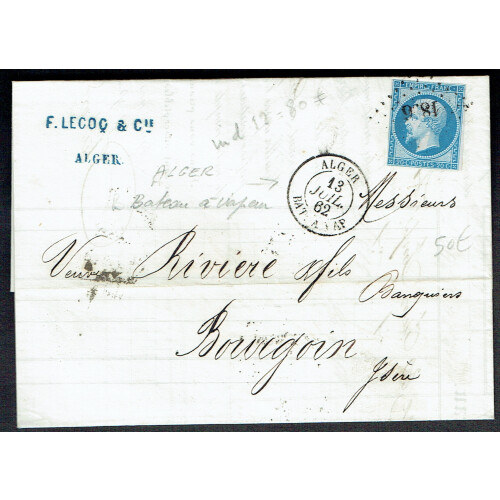 F. LECOQ & CIE
ALGER.
ind 12 = 80 €
ALGER
Bateau à vapeur
EMPIRE FRANC
20 C POSTES 20 C
ALGER
13
JUIL.
62
BAT. A VAP
Messieurs
50€
Veuve Rivière & fils
Banquiers
Bourgoin
Isère